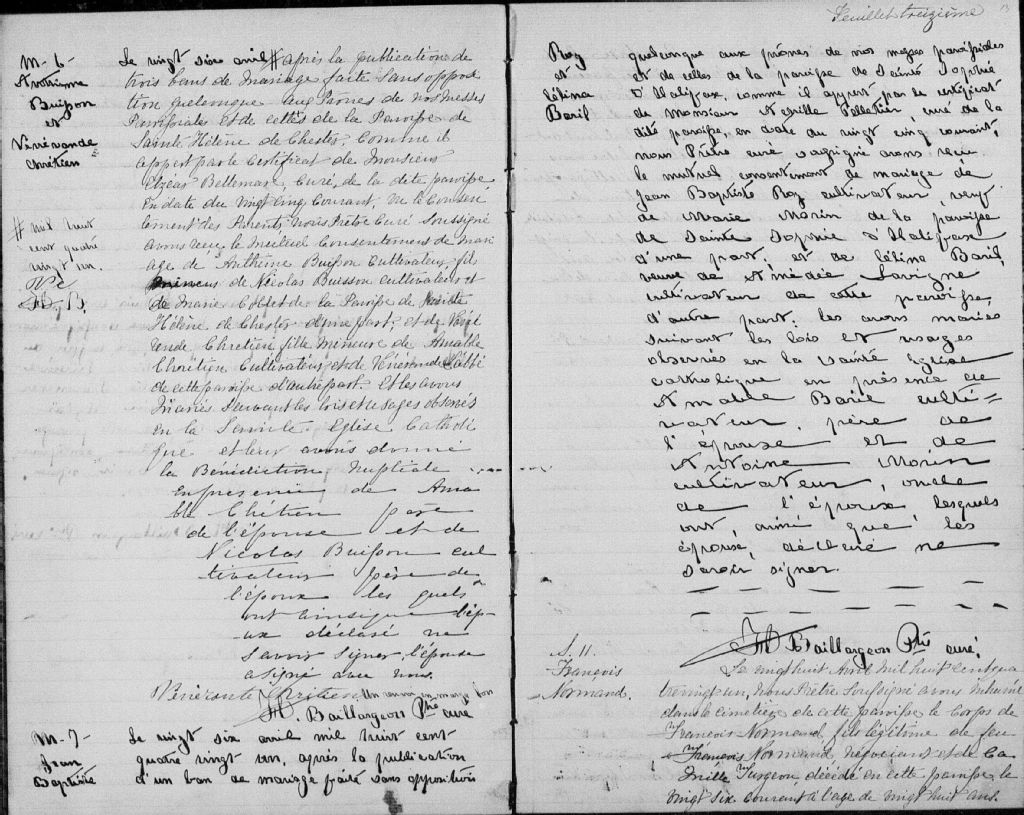 M-6-
Anthime
Buisson
et
Vénérande
Chrétien
# mil huit
cent quatre
vingt un.
Le vingt six avril # après la publication de
trois bans de Mariage faite sans opposi
tion quelconque aux Prônes de nos Messes
Paroissiales et de celles de la Paroisse de
Sainte Hélène de Chester, Comme il
appert par le Certificat de Monsieur
Elzéas Bellemare, Curé, de la dite paroisse,
En date du Vingt Cinq Courant, Vu le Consen
tement des Parents, Nous Prêtre Curé Soussigné
avons reçu le Mutuel Consentement de Mari
age de Anthime Buisson Cultivateur fils
de Nicolas Buisson Cultivateur et
de Marie de la Paroisse de Sainte
Hélène de Chester d'une part, et de Véné
rende Chretien, fille Mineure de Amable
Chrétien Cultivateur, et de Vénérande
de cette paroisse d'autre part, Et les avons
Mariés Suivant les lois et usages observés
en la Sainte Eglise Catholi
que et leur avons donné
la Bénédiction Nuptiale
en présence de Ama
ble Chrétien père
de l'épouse et de
Nicolas Buisson cul
tivateur père de
l'époux les quels
ont ainsi que l'ép-
ux déclaré ne
Savoir Signer, l'épouse
a Signé avec nous.
Vénérante Chrétien Un renvoi en marge bon
H. Baillargeon Ptre curé
M-7-
Jean
Baptiste
Le vingt six avril mil huit cent
quatre vingt un, après la publication
d'un ban de mariage faite sans opposition
Feuillet treizième
Roy
et
Célina
Baril
quelconque aux prônes de nos messes paroissiales
et de celles de la paroisse de Sainte Sophie
d'Halifax, comme il appert par le certificat
de Monsieur Achille Pelletier, curé de la
dite paroisse, en date du vingt cinq courant,
nous Prêtre curé soussigné avons reçu
le mutuel consentement de mariage de
Jean Baptiste Roy cultivateur, veuf
de Marie Morin de la paroisse
de Sainte Sophie d'Halifax
d'une part, et de Céline Baril,
veuve de Amédée Lavigne
cultivateur de cette paroisse,
d'autre part; les avons mariés
suivant les lois et usages
observés en la Sainte Eglise
catholique en présence de
Amable Baril culti=
vateur, père de
l'épouse et de
Antoine Morin
cultivateur, oncle
de l'époux, lesquels
ont, ainsi que les
épousé, déclaré ne
savoir signer.
H Baillargeon Ptre curé,
S. 11.
François
Normand.
Le vingt huit Avril Mil huit cent qua
tre vingt un, Nous Prêtre Soussigné avons inhumé
dans le cimetière de cette paroisse le Corps de
François Normand, fils légitime de feu
François Normand, négociant et de Ca
mille Turgeon, décédé en cette paroisse le
vingt six Courant à l'âge de vingt huit ans.